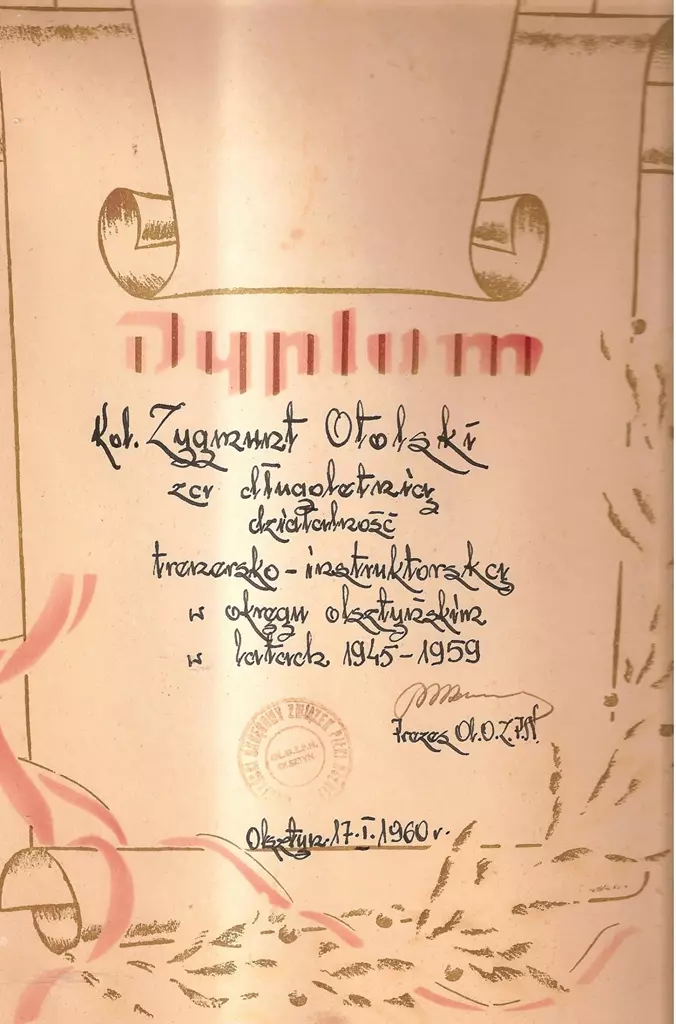 Dyplom
Kol. Zygmunt Otolski
za długoletnią
działalność
trenersko-instruktorską
w okręgu olsztyńskim
w latach 1945-1959
Prezes Ol.O.Z.P.N.
OKRĘGOWY ZWIĄZEK PIŁKI
OLSZTYN
Olsztyn. 17.I.1960r.